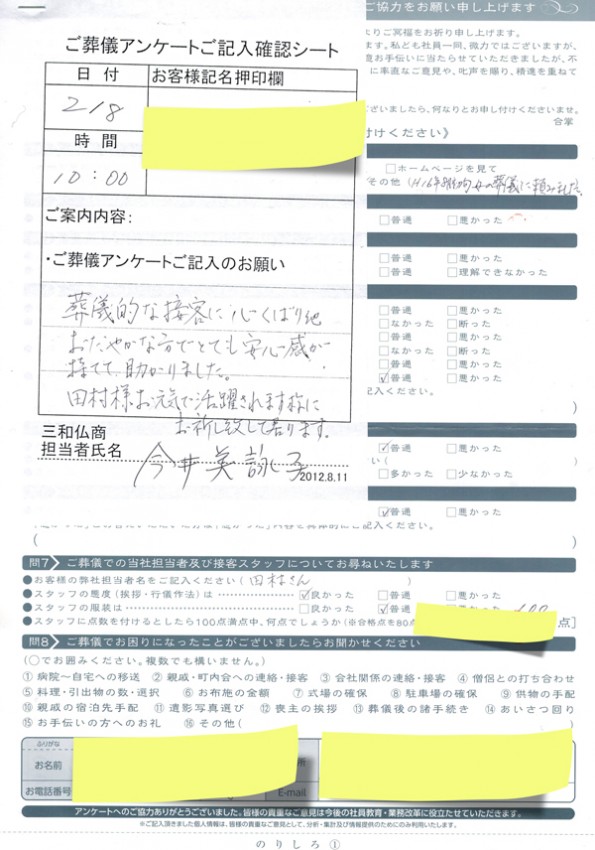 ご協力をお願い申し上げます
ご葬儀アンケートご記入確認シート
日付
お客様記名押印欄
2/8
時間
10:00
ご案内内容:
・ご葬儀アンケートご記入のお願い
葬儀的な接客に心くばり
おだやかな方でとても安心感が
持てて、助かりました。
田村様お元気で活躍されます様に
お祈し致して居ります。
三和仏商
担当者氏名
今井英詠子
2012.8.11
よりご冥福をお祈り申し上げます。
ます。私ども社員一同、微力ではございますが、
お手伝いに当たらせていただきましたが、不
に率直なご意見や、叱声を賜り、精進を重ねて
ございましたら、何なりとお申し付けくださいませ。
合掌
付けください》
□ホームページを見て
その他(H16年
の葬儀に頼みました
□普通 □悪かった
□普通 □悪かった
□普通 □理解できなかった
□普通 □悪かった
□なかった □断った
□普通 □悪かった
□なかった □断った
□普通 □悪かった
☑普通 □悪かった
記入ください。
)
☑普通 □悪かった
い(
□多かった □少なかった
☑普通 □悪かった
(
)
問7 ご葬儀での当社担当者及び接客スタッフについてお尋ねいたします
●お客様の弊社担当者名をご記入ください(田村さん)
●スタッフの態度(挨拶・行儀作法)は ☑良かった □普通 □悪かった
●スタッフの服装は □良かった ☑普通 □悪かった
●スタッフに点数を付けるとしたら100点満点中、何点でしょうか(※合格点を80点
点]
問8 ご葬儀でお困りになったことがございましたらお聞かせください
(○でお囲みください。複数でも構いません。)
①病院～自宅への移送 ②親戚・町内会への連絡・接客 ③会社関係の連絡・接客 ④僧侶との打ち合わせ
⑤料理・引出物の数・選択 ⑥お布施の金額 ⑦式場の確保 ⑧駐車場の確保 ⑨供物の手配
⑩親戚の宿泊先手配 ⑪遺影写真選び ⑫喪主の挨拶 ⑬葬儀後の諸手続き ⑭あいさつ回り
⑮お手伝いの方へのお礼 ⑯その他( )
ふりがな
お名前
所
お電話番号
E-mail
アンケートへのご協力ありがとうございました。皆様の貴重なご意見は今後の社員教育・業務改革に役立たせていただきます。
※ご記入頂きました個人情報は、皆様の貴重なご意見として、分析・集計及び情報提供のためにのみ利用いたします。
のりしろ①